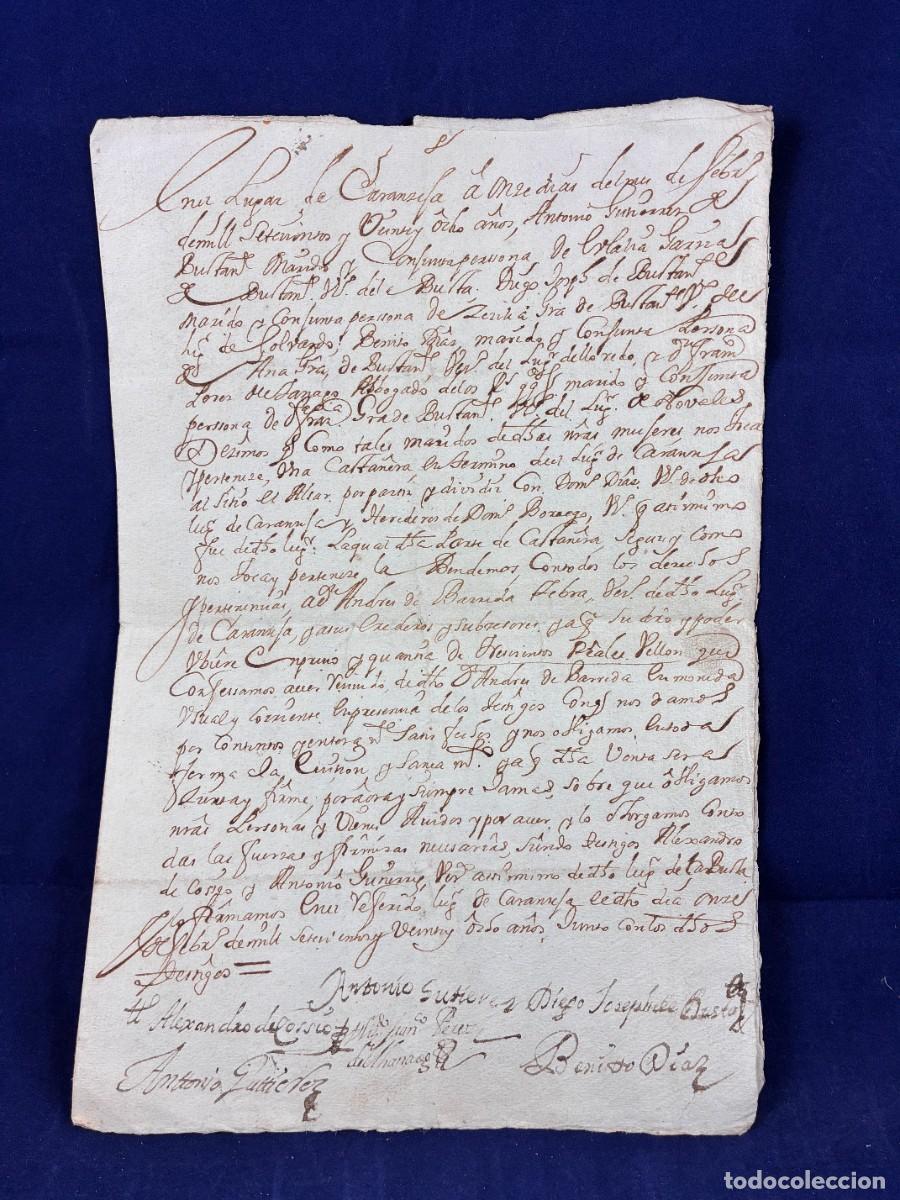 En el Lugar de Caranzeja â onze dias del mes de febr.
de mill Setecientos y Veinte y ôcho años, Antonio Gutierrez de
Bustam.te Marido y Conjunta persona de
Bustam.te V.o de la Busta. Diego Joseph de Bustam.te
marido y Conjunta persona de Zecilia Gra de Bustam.te V.o del
lug. de Golvardo, Benito Dias, marido y Conjunta persona
de Ana Gra, de Bustam.te Vez.o del Lug.r de lloredo, y Dn Fran.co
Perez Abogado de los R.s marido y Conjunta
persona de Gra de Bustam.te V.o del Lug.r de Novales
Dezimos q Como tales maridos de dhas nras mujeres nos toca
y perteneze, Vna Castañera en termino del Lug.r de Caranzeja
al sitio el Alsar, por partir y dividir Con Dom.o Dias, V.o de dho
lug.r de Caranzeja y Herederos de Dom.o Borrego, V.o q asimismo
fue de dho lug.r La qual dha Parte de Castañera Segun y Como
nos toca y perteneze la Bendemos Con todos los derechos
y pertenencias, a Dn Andres de Barreda Yebra, Vez.o de dho Lug.r
de Caranzeja, y a sus erederos y subzesores, y a q su dro y poder
Vbiere en prezio y quantia de trescientos Reales Vellon que
Confessamos aver rezivido, de dho Dn Andres de Barreda en moneda
Vsual y Corriente en presencia de los testigos Con q nos damos
por Contentos y enteram.te Satisfechos y nos obligamos, en toda
forma a la Evicion, y Saneam.to y a q dha Venta sera
Zierta y firme, por aôra y siempre Jamas, sobre que ôbligamos
nras Personas y Vienes Auidos y por aver, y lo ôtorgamos Con to
das las fuerzas y firmezas necesarias, siendo testigos Alexandro
de Cossio y Antonio Gutierrez, Vez.s assi mismo de dho lug.r de la Busta
y lo firmamos en el referido, lug.r de Caranzeja en dho dia onze
de febr. de mill setecientos y Veinte y ôcho años, Junto con los dhos
testigos =
Antonio Gutierrez Diego Joseph de Busta.te
t.o Alexandro de Cossio Perez
Antonio Gutierrez Benitto Diaz
todocoleccion